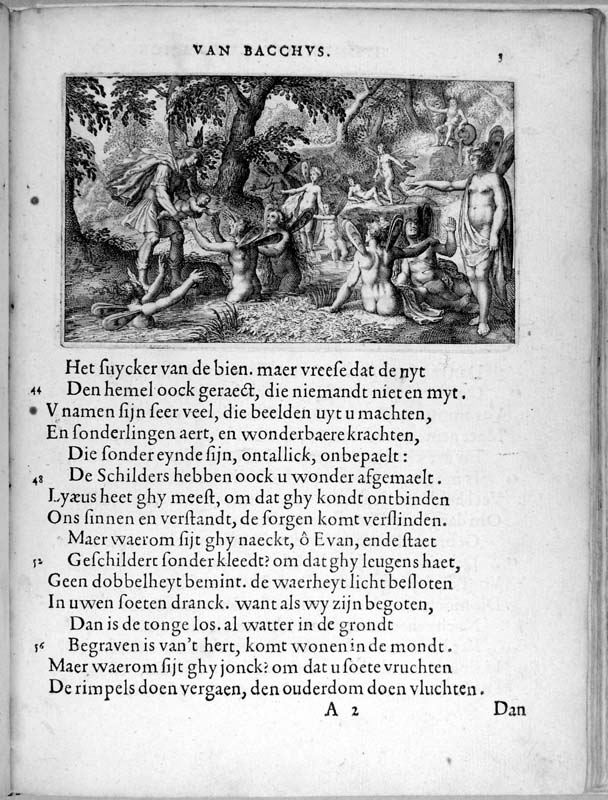 VAN BACCHVS.
3
Het suycker van de bien. maer vreese dat de nyt
44 Den hemel oock geraect, die niemandt niet en myt.
V namen sijn seer veel, die beelden uyt u machten,
En sonderlingen aert, en wonderbaere krachten,
Die sonder eynde sijn, ontallick, onbepaelt:
48 De Schilders hebben oock u wonder afgemaelt.
Lyæus heet ghy meest, om dat ghy kondt ontbinden
Ons sinnen en verstandt, de sorgen komt verslinden.
Maer waerom sijt ghy naeckt, ô Evan, ende staet
52 Geschildert sonder kleedt? om dat ghy leugens haet,
Geen dobbelheyt bemint. de waerheyt licht besloten
In uwen soeten dranck. want als wy zijn begoten,
Dan is de tonge los. al watter in de grondt
56 Begraven is van't hert, komt wonen in de mondt.
Maer waerom sijt ghy jonck? om dat u soete vruchten
De rimpels doen vergaen, den ouderdom doen vluchten.
A 2 Dan